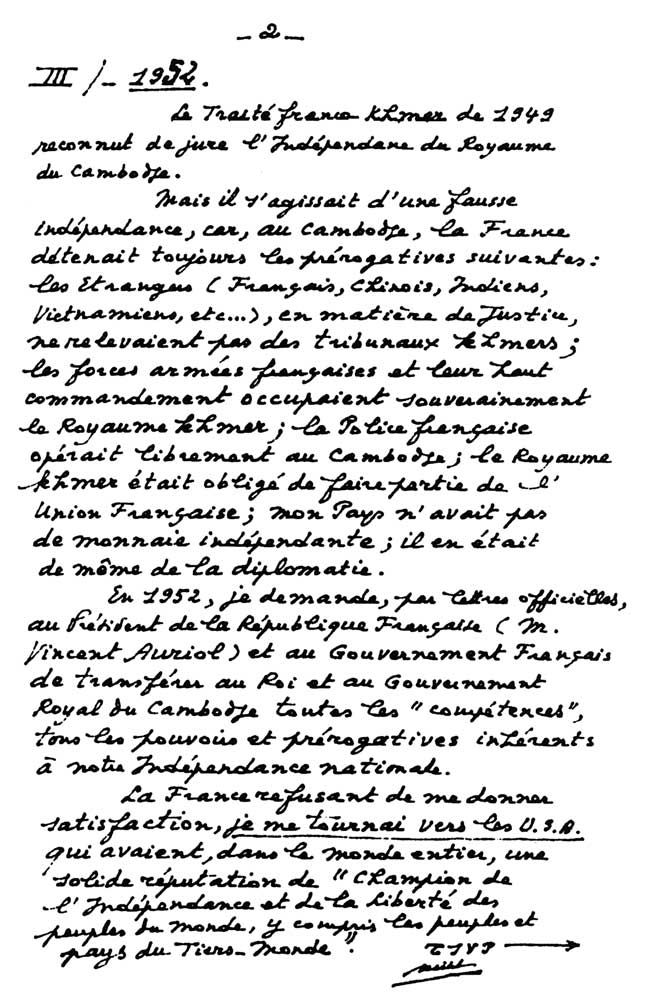 - 2 -
III /- 1952.
Le Traité franco khmer de 1949
reconnut de jure l'Indépendance du Royaume
du Cambodge.
Mais il s'agissait d'une fausse
indépendance, car, au Cambodge, la France
détenait toujours les prérogatives suivantes :
les Etrangers ( Français, Chinois, Indiens,
Vietnamiens, etc...), en matière de Justice,
ne relevaient pas des tribunaux khmers ;
les forces armées françaises et leur haut
commandement occupaient souverainement
le Royaume khmer ; la Police française
opérait librement au Cambodge ; le Royaume
khmer était obligé de faire partie de l'
Union Française ; mon Pays n'avait pas
de monnaie indépendante ; il en était
de même de la diplomatie.
En 1952, je demande, par lettres officielles,
au Président de la République Française ( M.
Vincent Auriol ) et au Gouvernement Français
de transférer au Roi et au Gouvernement
Royal du Cambodge toutes les " compétences",
tous les pouvoirs et prérogatives inhérents
à notre Indépendance nationale.
La France refusant de me donner
satisfaction, je me tournai vers les U.S.A.
qui avaient, dans le monde entier, une
solide réputation de " Champion de
l'Indépendance et de la Liberté des
peuples du monde, y compris les peuples et
pays du Tiers-Monde ".